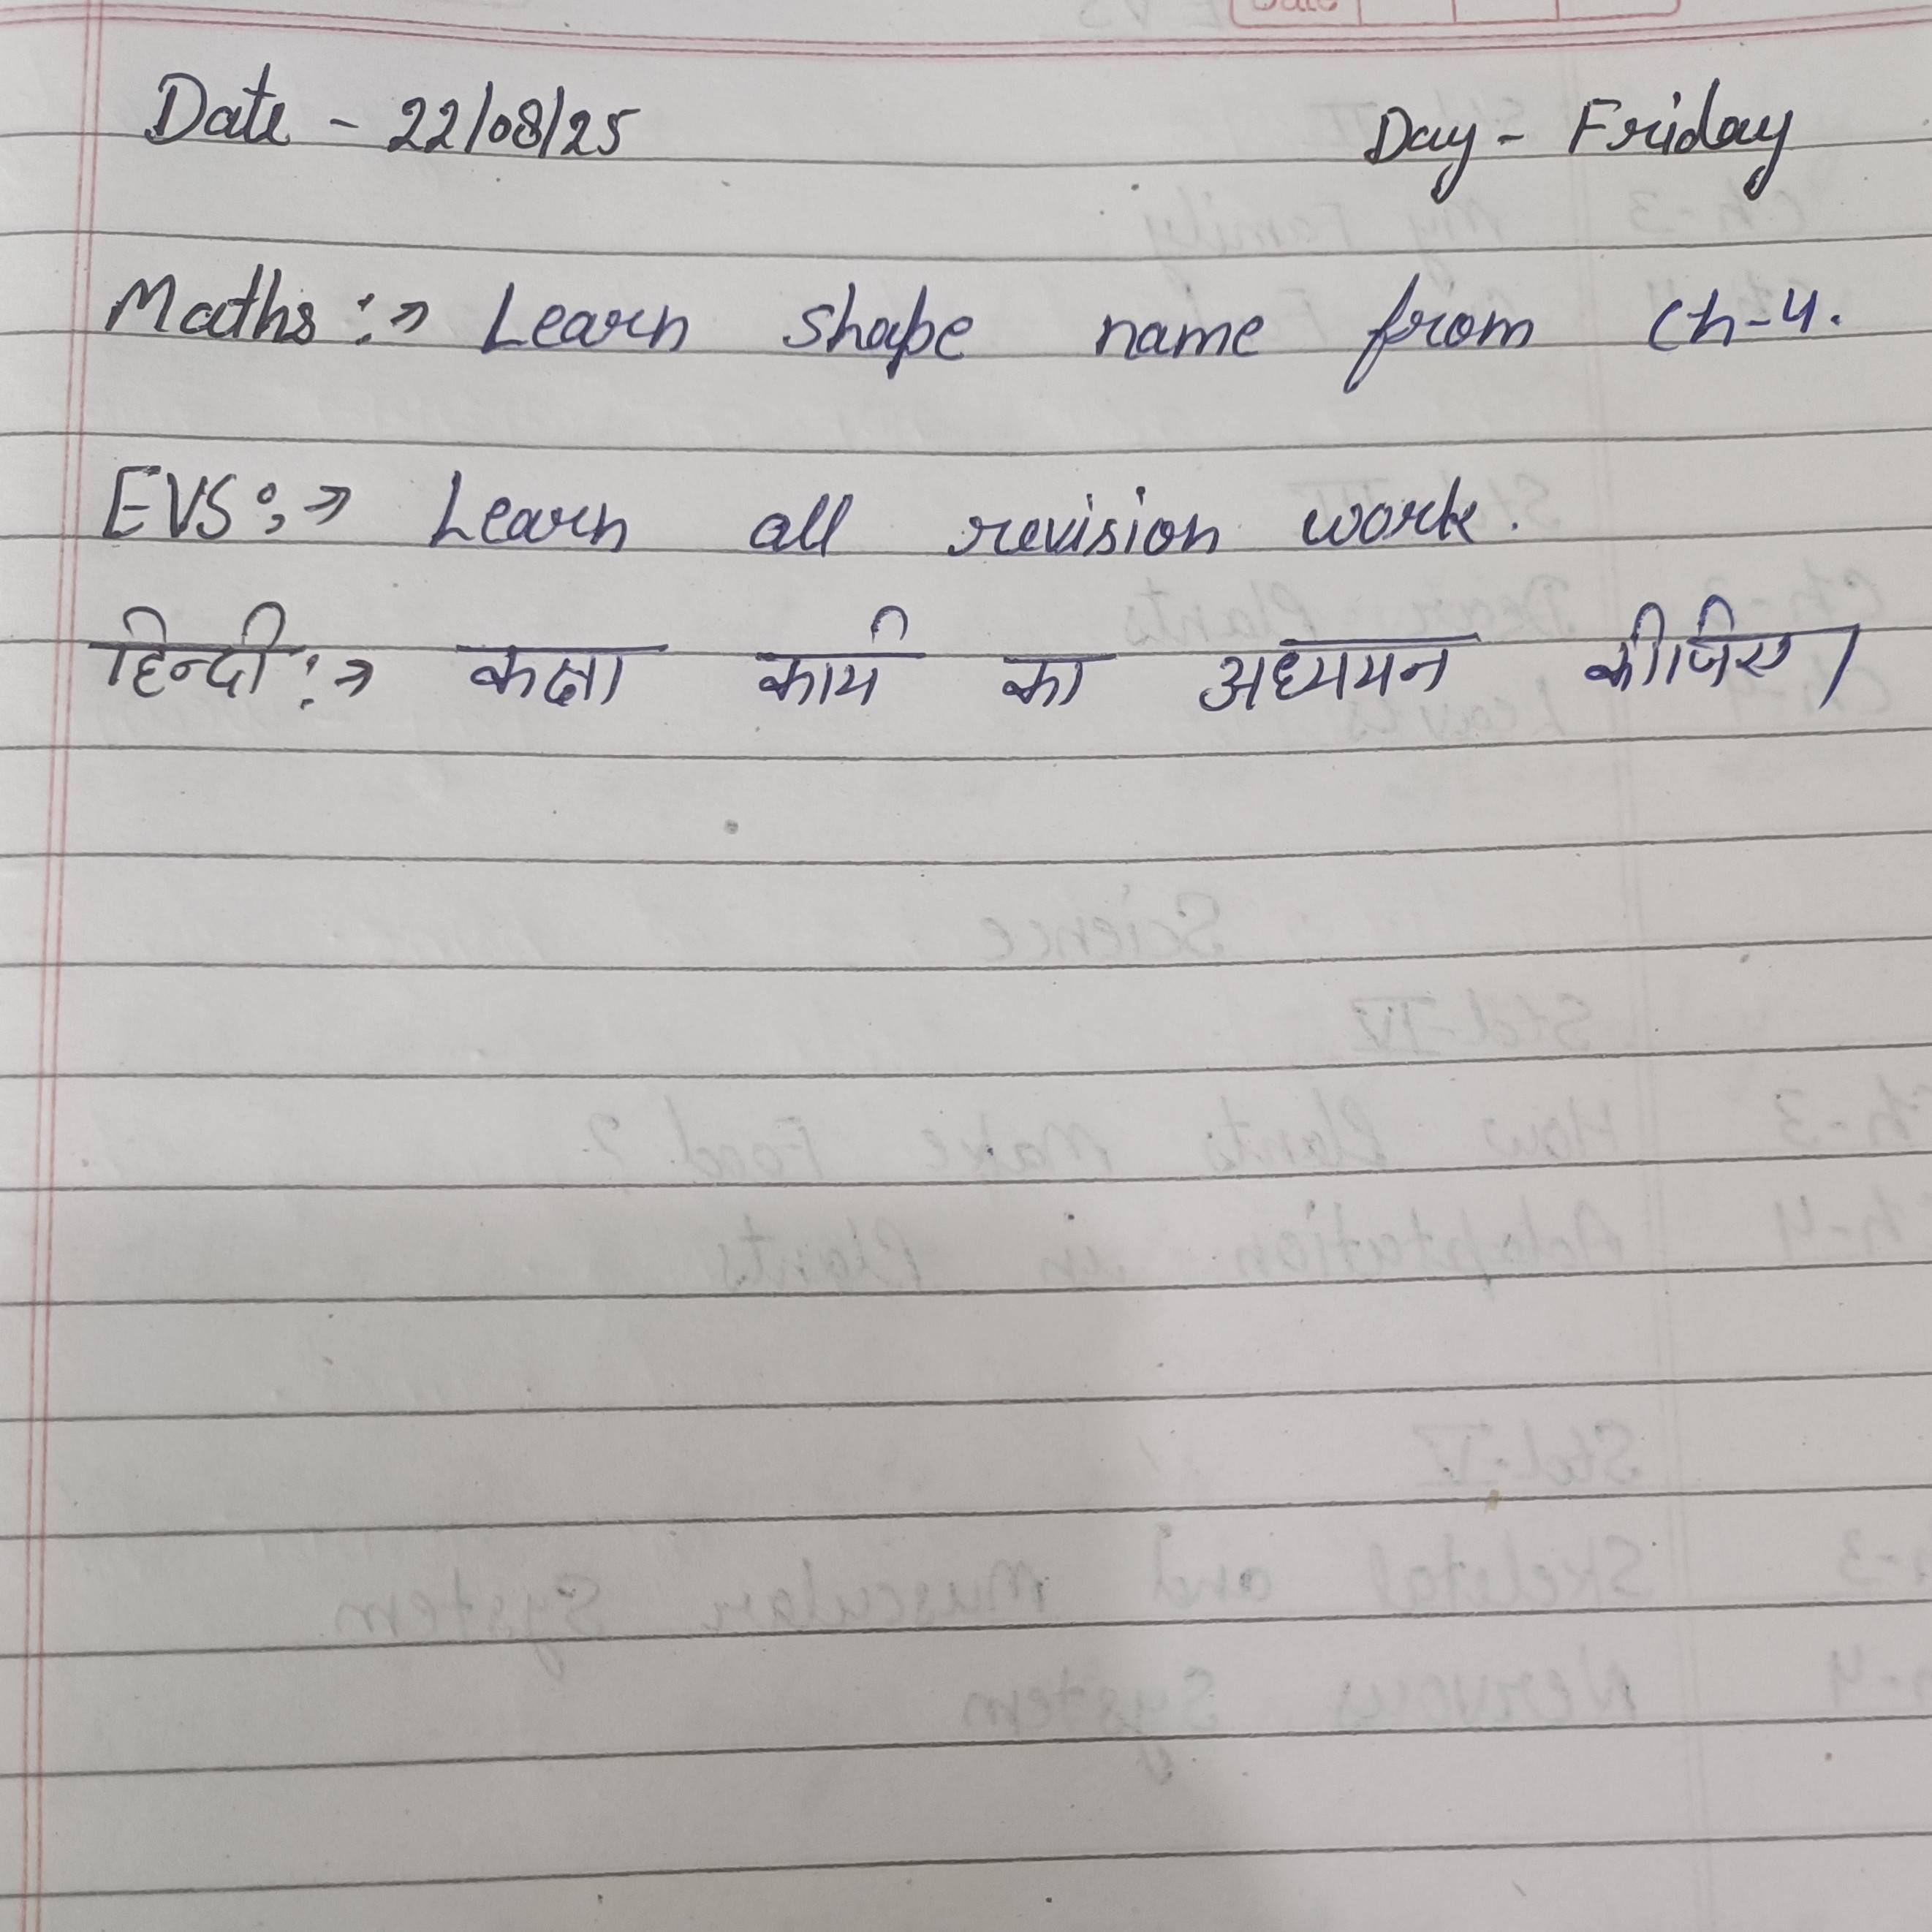 Date - 22/08/25 Day - Friday
Maths :→ Learn shape name from Ch-4.
EVS :→ Learn all revision work.
हिन्दी :→ कक्षा कार्य का अध्ययन कीजिए।